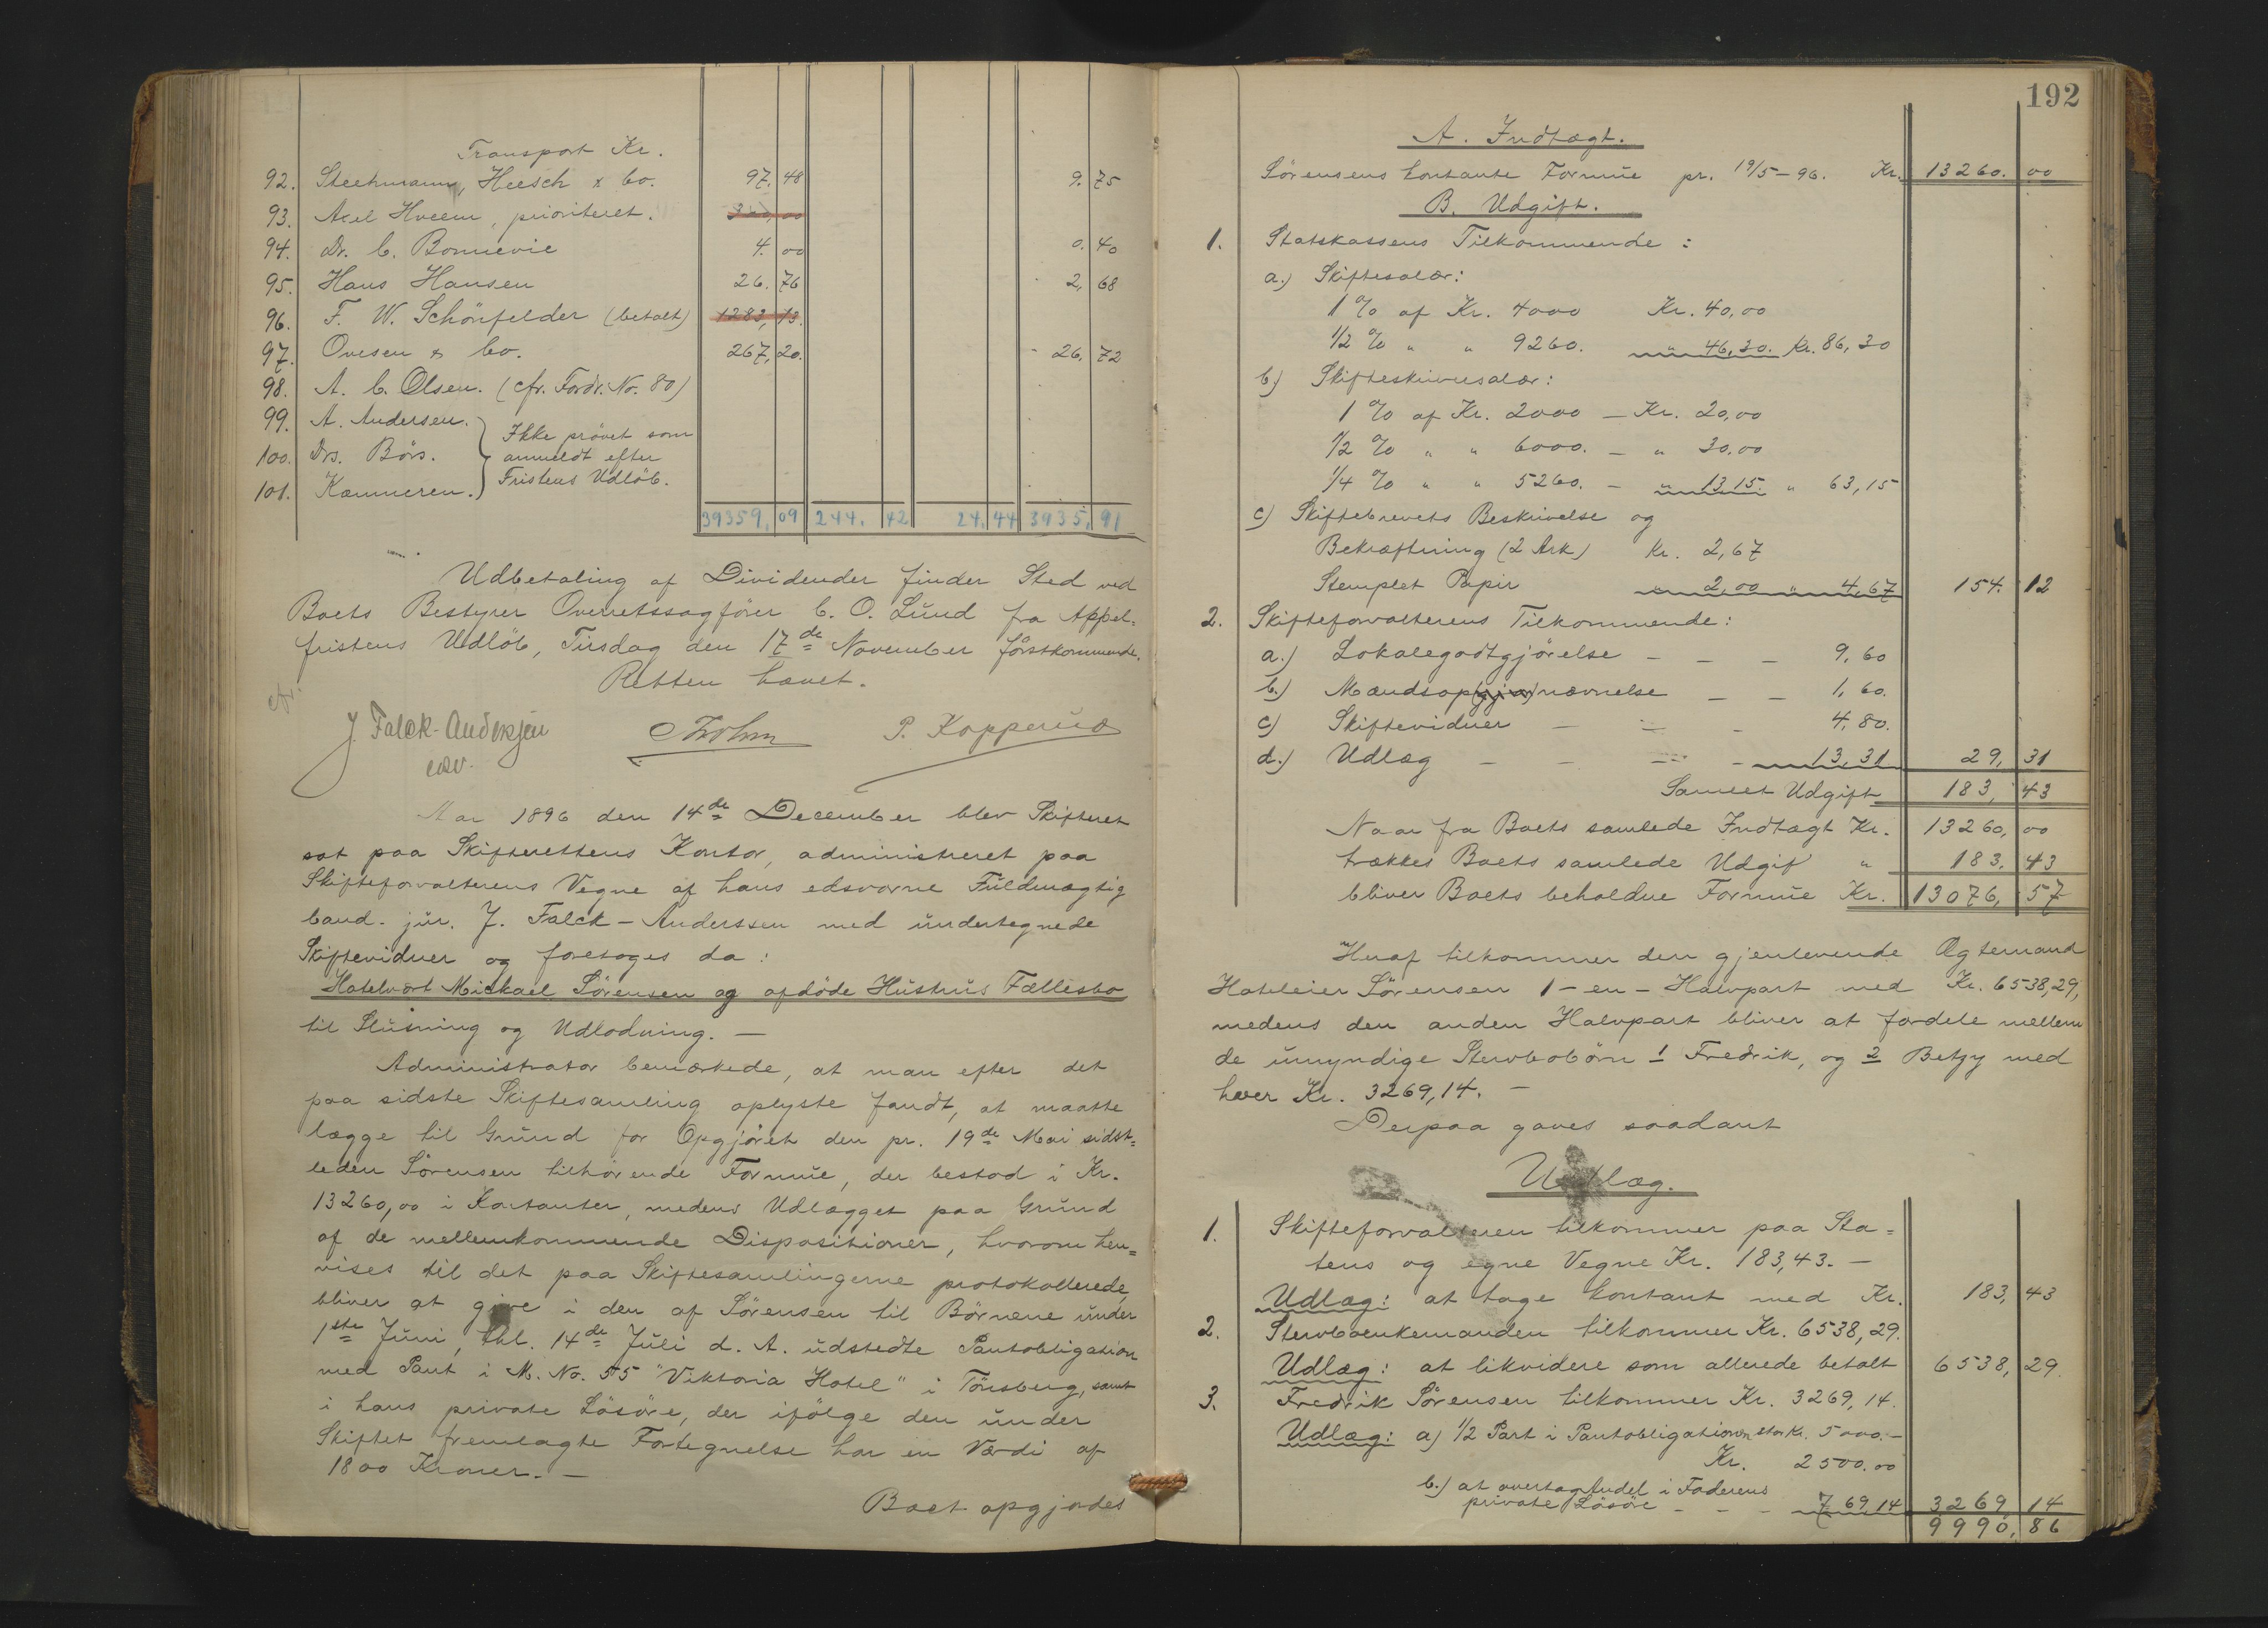 Transport Kr.
92. Steehmann, Heesch & Co. 97. 48 9. 75
93. Axel Hveem, prioriteret.
94. Dr. C. Bonnevie 4. 00 0. 40
95. Hans Hansen 26. 76 2, 68
96. F. W. Schönfelder (betalt) 1283, 13.
97. Ovesen & Co. 267, 20. 26, 72
98. A. C. Olsen. (cfr. Fordr. No. 80)
99. A. Andersen.
100. Drs. Börs.
101. Kæmneren.
Ikke prövet som
anmeldt efter
Fristens Udlöb.
39359, 09 244. 42 24, 44 3935, 91
Udbetaling af Dividender finder Sted ved
Boets Bestyrer Overretssagförer C. O. Lund fra Appel=
fristens Udlöb, Tirsdag den 17de November förstkommende.
Retten hævet.
J. Falck-Anderssen P. Kopperud
edsv.
Aar 1896 den 14de December blev Skifteret
sat paa Skifterettens Kontor, administreret paa
Skifteforvalterens Vegne af hans edsvorne Fuldmægtig
Cand. jur. J. Falck-Anderssen med undertegnede
Skiftevidner og foretoges da:
Hotelvært Mickael Sörensen og afdöde Hustrus Fællesbo
til Slutning og Udlodning. —
Administrator bemærkede, at man efter det
paa sidste Skiftesamling oplyste fandt, at maatte
lægge til Grund for Opgjöret den pr. 19de Mai sidst=
leden Sörensen tilhörende Formue, der bestod i Kr.
13260,00 i Kontanter, medens Udlægget paa Grund
af de mellemkommende Dispositioner, hvorom hen=
vises til det paa Skiftesamlingerne protokollerede,
bliver at give i den af Sörensen til Börnene under
1ste Juni, thl. 14de Juli d. A. udstedte Pantobligation
med Pant i M. No. 55 "Viktoria Hotel" i Tönsberg, samt
i hans private Lösöre, der ifölge den under
Skiftet fremlagte Fortegnelse har en Værdi af
1800 Kroner. —
Boet opgjordes
192
A. Indtægt.
Sörensens kontante Formue pr. 19/5-96. Kr. 13260. 00
B. Udgift.
1. Statskassens Tilkommende:
a.) Skiftesalær:
1 % af Kr. 4000 Kr. 40,00
1/2 % " " 9260. " 46,30. Kr. 86,30
b) Skifteskriversalær:
1 % af Kr. 2000 — Kr. 20,00
1/2 % " " 6000. — " 30.00
1/4 % " " 5260. — " 13,15. " 63,15
c) Skiftebrevets Beskrivelse og
Bekræftning (2 Ark) Kr. 2,67
Stemplet Papir " 2,00 " 4,67 154. 12
2. Skifteforvalterens Tilkommende:
a.) Lokalegodtgjörelse — — — 9,60
b.) Mandsop(gjör)nævnelse — — 1,60.
c) Skiftevidner — — — 4,80.
d.) Udlæg — — — — 13,31 29, 31
Samlet Udgift 183, 43
Naar fra Boets samlede Indtægt Kr. 13260, 00
trækkes Boets samlede Udgif " 183, 43
bliver Boets beholdne Formue Kr. 13076, 57
Heraf tilkommer den gjenlevende Ægtemand
Hoteleier Sörensen 1-en-Halvpart med Kr. 6538,29,
medens den anden Halvpart bliver at fordele mellem
de umyndige Stervbobörn 1 Fredrik, og 2 Betzy med
hver Kr. 3269,14. —
Derpaa gaves saadant
Udlæg.
1. Skifteforvalteren tilkommer paa Sta=
tens og egne Vegne Kr. 183,43. —
Udlæg: at tage kontant med Kr. 183, 43
2. Stervboenkemanden tilkommer Kr. 6538,29.
Udlæg: at likvidere som allerede betalt 6538, 29.
3. Fredrik Sörensen tilkommer Kr. 3269,14.
Udlæg: a) 1/2 Part i Pantobligationen stor Kr. 5000.—
Kr. 2500.00
b.) at overtage Andel i Faderens
private Lösöre — — — 769 14 3269 14
9990, 86